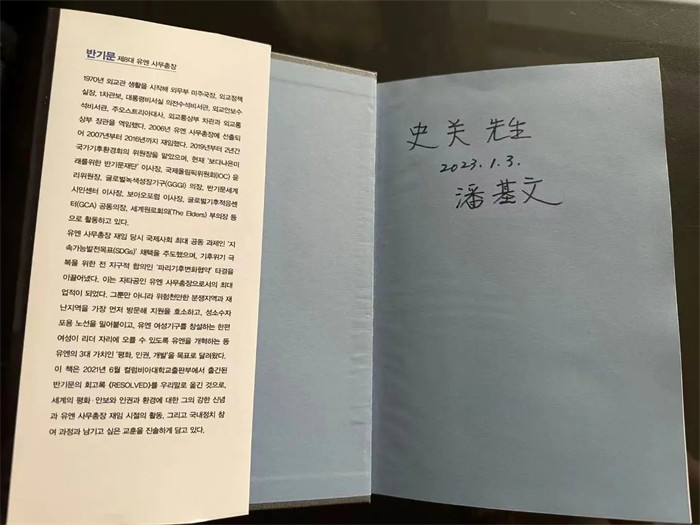 반기문 제8대 유엔 사무총장
1970년 외교관 생활을 시작해 외무부 미주국장, 외교정책
실장, 1차관보, 대통령비서실 의전수석비서관, 외교안보수
석비서관, 주오스트리아대사, 외교통상부 차관과 외교통
상부 장관을 역임했다. 2006년 유엔 사무총장에 선출되
어 2007년부터 2016년까지 재임했다. 2019년부터 2년간
국가기후환경회의 위원장을 맡았으며, 현재 '보다나은미
래를위한 반기문재단' 이사장, 국제올림픽위원회(IOC) 윤
리위원장, 글로벌녹색성장기구(GGGI) 의장, 반기문세계
시민센터 이사장, 보아오포럼 이사장, 글로벌기후적응센
터(GCA) 공동의장, 세계원로회의(The Elders) 부의장 등
으로 활동하고 있다.
유엔 사무총장 재임 당시 국제사회 최대 공동 과제인 '지
속가능발전목표(SDGs)' 채택을 주도했으며, 기후위기 극
복을 위한 전 지구적 합의인 '파리기후변화협약' 타결을
이끌어냈다. 이는 자타공인 유엔 사무총장으로서의 최대
업적이 되었다. 그뿐만 아니라 위험천만한 분쟁지역과 재
난지역을 가장 먼저 방문해 지원을 호소하고, 성소수자
포용 노선을 밀어붙이고, 유엔 여성기구를 창설하는 한편
여성이 리더 자리에 오를 수 있도록 유엔을 개혁하는 등
유엔의 3대 가치인 '평화, 인권, 개발'을 목표로 달려왔다.
이 책은 2021년 6월 컬럼비아대학교출판부에서 출간된
반기문의 회고록 《RESOLVED》를 우리말로 옮긴 것으로,
세계의 평화·안보와 인권과 환경에 대한 그의 강한 신념
과 유엔 사무총장 재임 시절의 활동, 그리고 국내정치 참
여 과정과 남기고 싶은 교훈을 진솔하게 담고 있다.
史关先生
2023.1.3.
潘基文